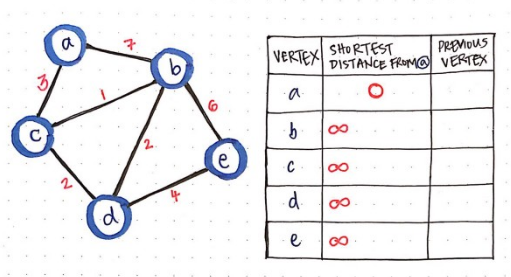 a
7
b
3
1
c
6
2
e
2
4
d
VERTEX SHORTEST DISTANCE FROM ⓐ PREVIOUS VERTEX
a 0
b ∞
c ∞
d ∞
e ∞